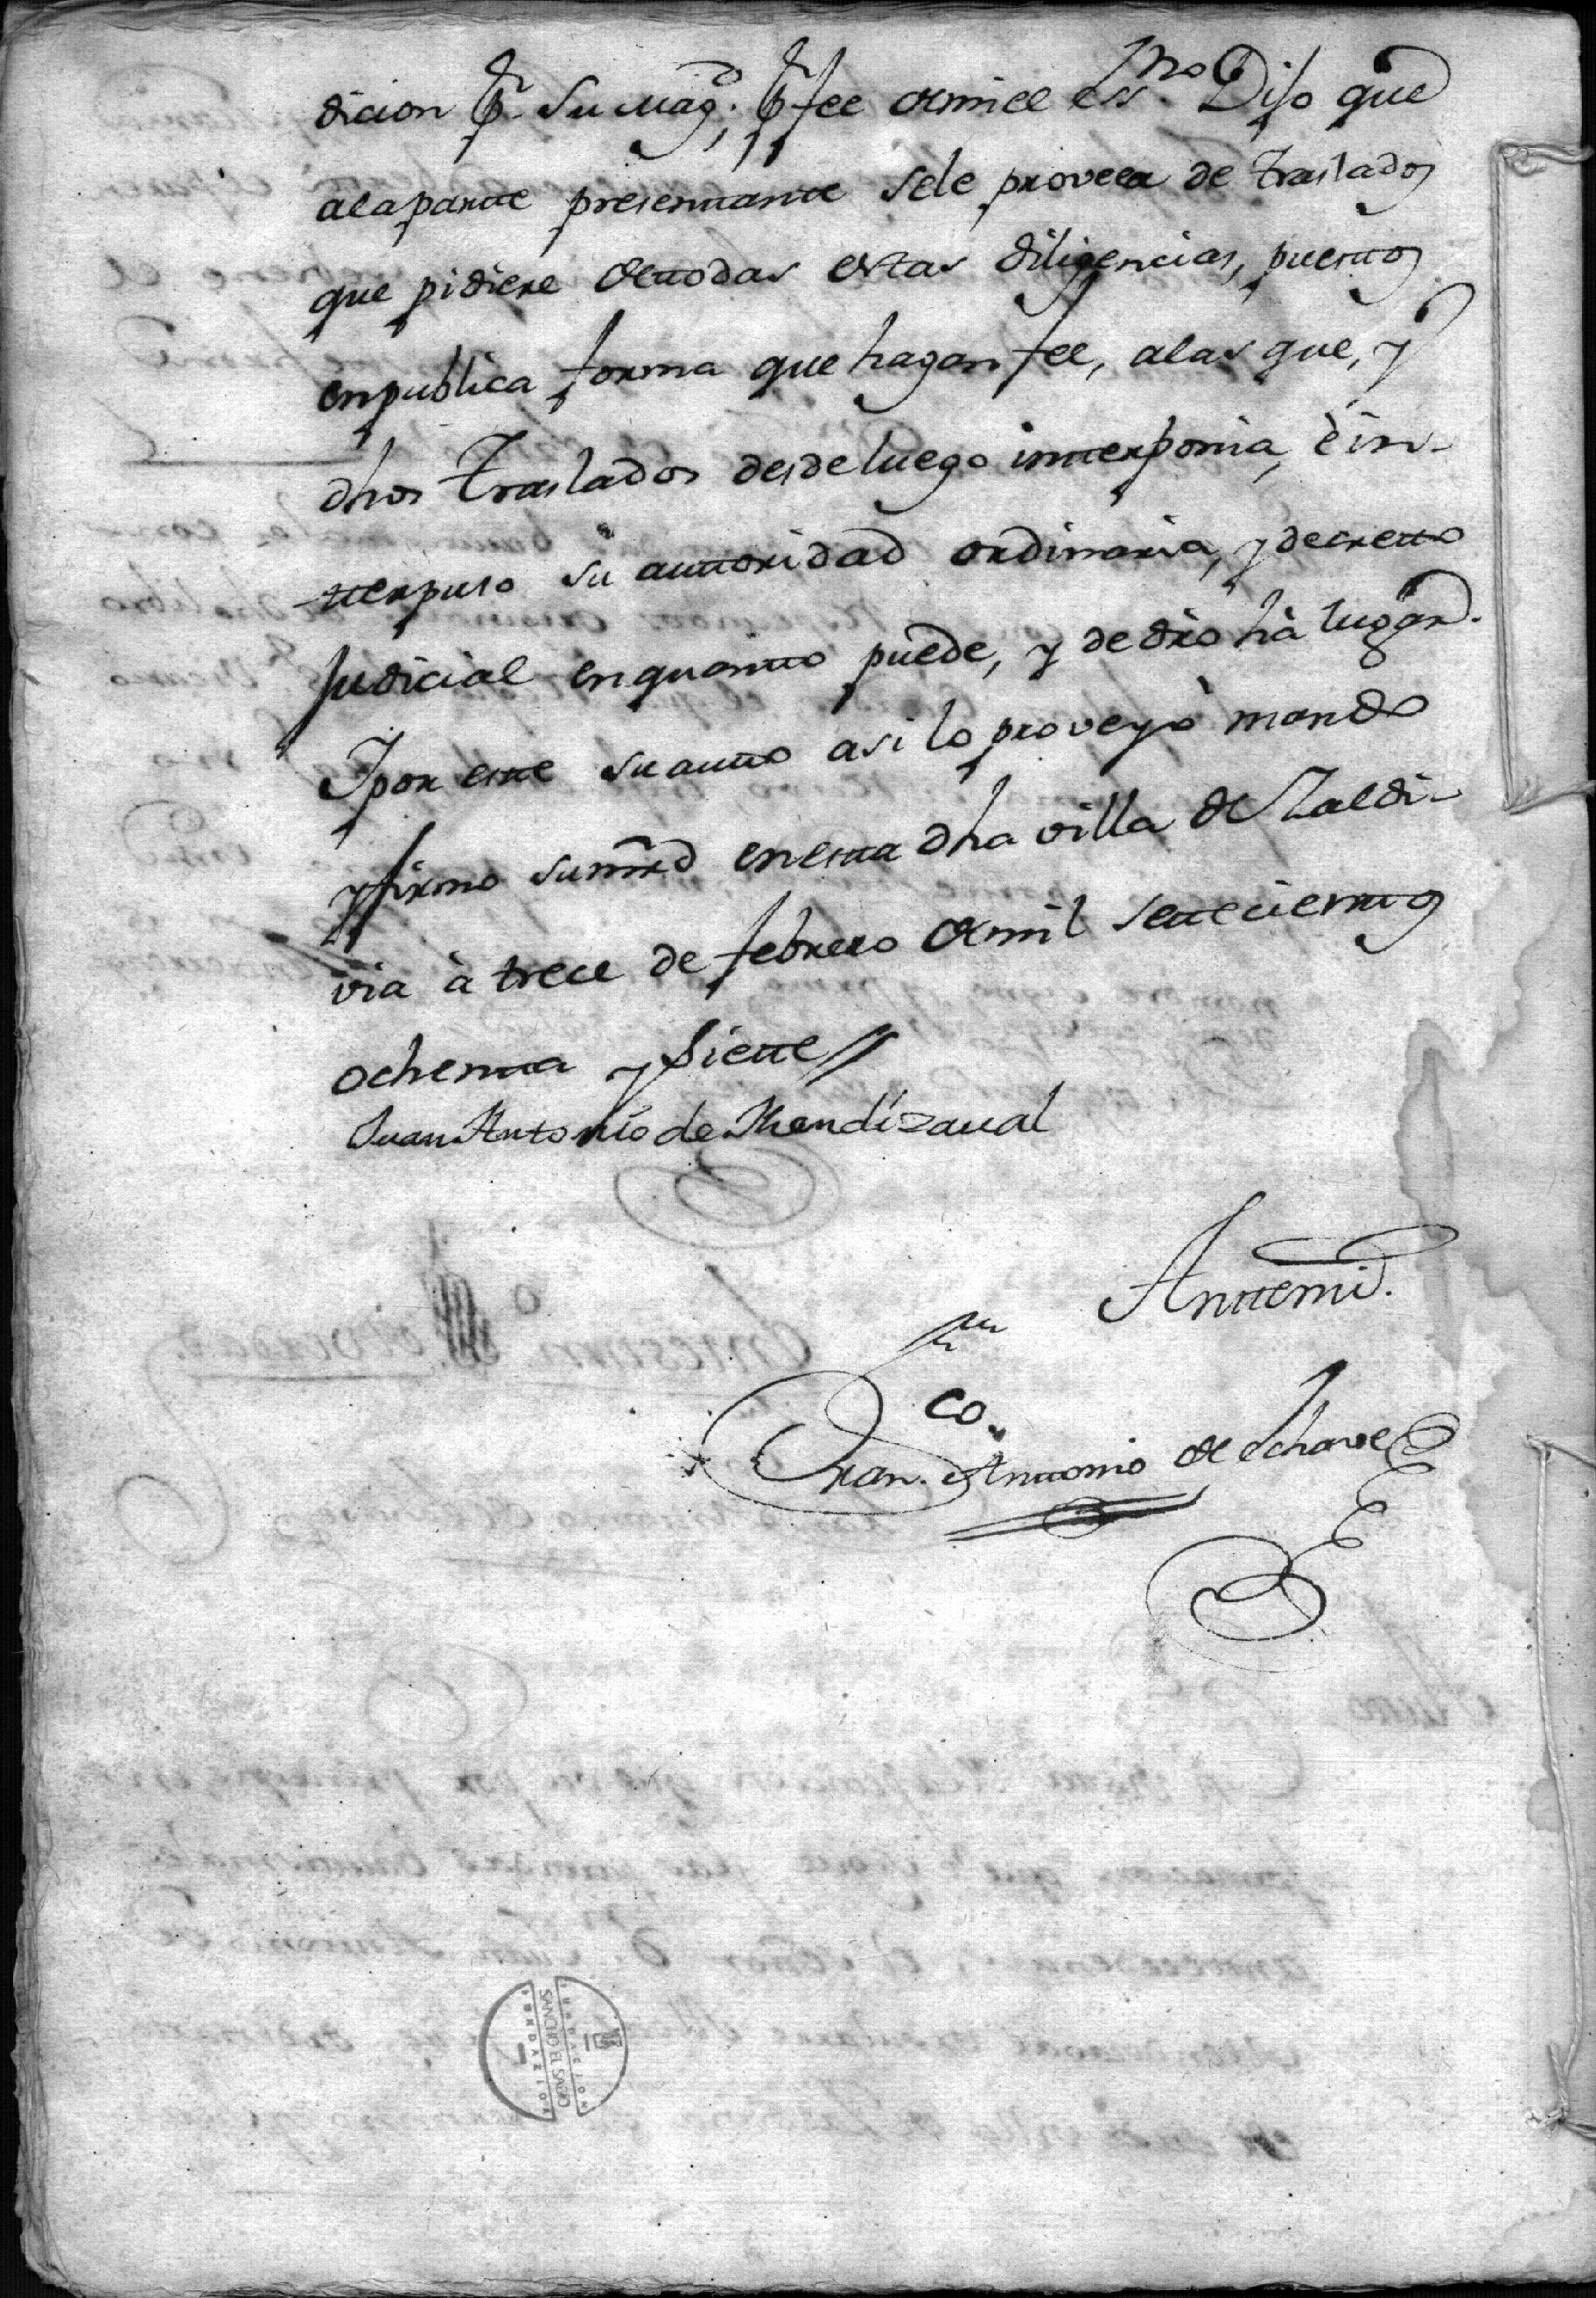 dicion pr. su Mag.d, pr fee de mi el ess.no Dijo que
ala partte presenttantte sele provea de traslados
que pidiere de ttodas estas diligencias, puesttos
en publica forma que hagan fee, alas que, y
dhos traslados desde luego intterponia, è in-
tterpuso su auttoridad ordinaria, y decretto
Judicial en quantto puede, y de dro hà lugar.
Y por estte su autto asi lo proveyò mando
y firmo su mrd en estta dha villa de Zaldi-
via à trece de febrero de mil settecienttos
ochentta y siette
Juan Antonio de Mendizaual
Anttemi.
Fran.co Anttonio de Echave
FUNDACION
SANCHO EL SABIO
FUNDAZIOA